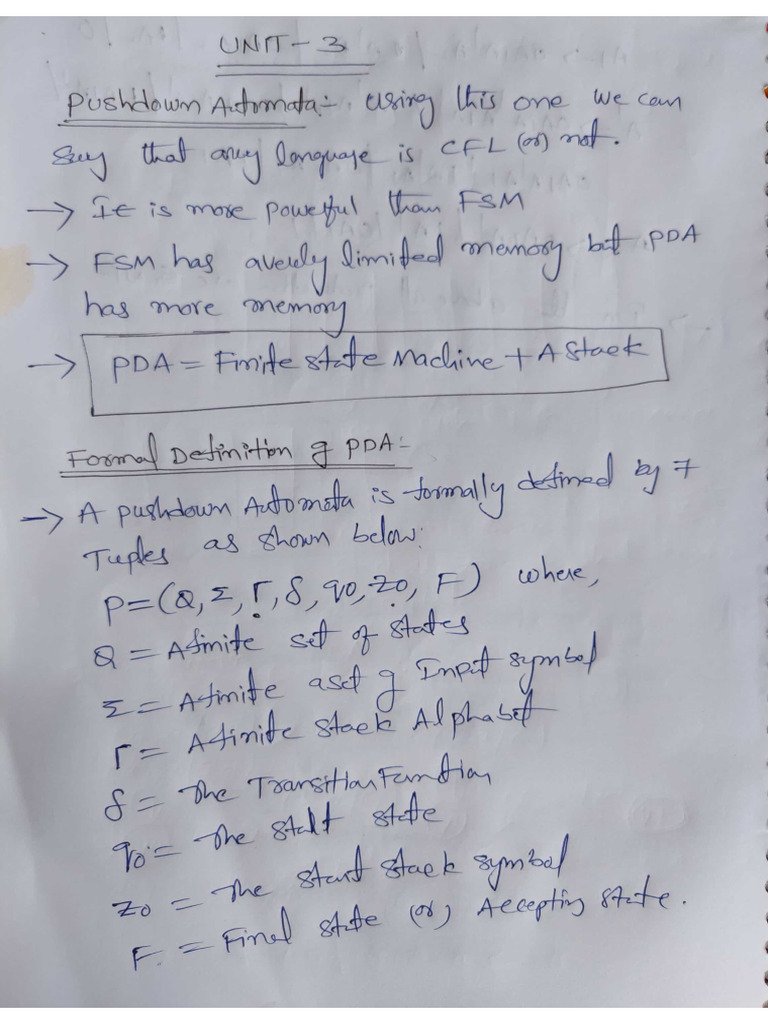 UNIT - 3
Pushdown Automata:- Using this one we can
say that any language is CFL (or) not.
→ It is more powerful than FSM
→ FSM has a very limited memory but PDA
has more memory
→ PDA = Finite state Machine + A Stack
Formal Definition of PDA:-
→ A pushdown Automata is formally defined by 7
Tuples as shown below:
P = (Q, Σ, Γ, δ, q0, z0, F) where,
Q = A finite set of states
Σ = A finite a set of Input symbol
Γ = A finite stack Alphabet
δ = The Transition Function
q0 = The start state
z0 = The start stack symbol
F = Final state (or) Accepting state.